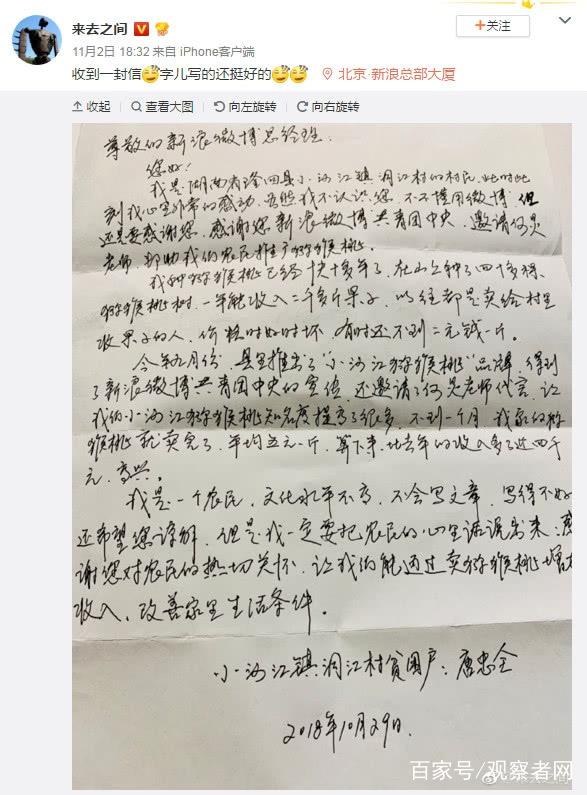 来去之间
+关注
11月2日 18:32 来自 iPhone客户端
收到一封信字儿写的还挺好的 北京·新浪总部大厦
收起 查看大图 向左旋转 向右旋转
尊敬的新浪微博总经理.
您好！
我是湖南省隆回县小沙江镇洞江村的村民，此时此
刻我心里非常的感动，虽然我不认识您，不懂用微博 但
还是要感谢您，感谢您新浪微博共青团中央，邀请何炅
老师，帮助我们农民推广猕猴桃。
我种猕猴桃已经快十多年了，在山上种了四十多棵
猕猴桃树，一年能收入二千多斤果子，以往都是卖给村里
收果子的人，价钱时好时坏，有时还不到二元钱一斤。
今年九月份，县里推出了"小沙江猕猴桃"品牌，得到
了新浪微博共青团中央的宣传，还邀请了何炅老师代言，让
我们小沙江猕猴桃知名度提高了很多，不到一个月，我家的猕
猴桃就卖完了，平均五元一斤，算下来，比去年的收入多了近四千
元，高兴。
我是一个农民，文化水平不高，不会写文章，写得不好
还希望您谅解，但是我一定要把农民的心里话说出来：感
谢您对农民的热切关怀，让我们能通过卖猕猴桃增加
收入，改善家里生活条件。
小沙江镇洞江村贫困户：唐忠全
2018年10月29日.
百家号/观察者网